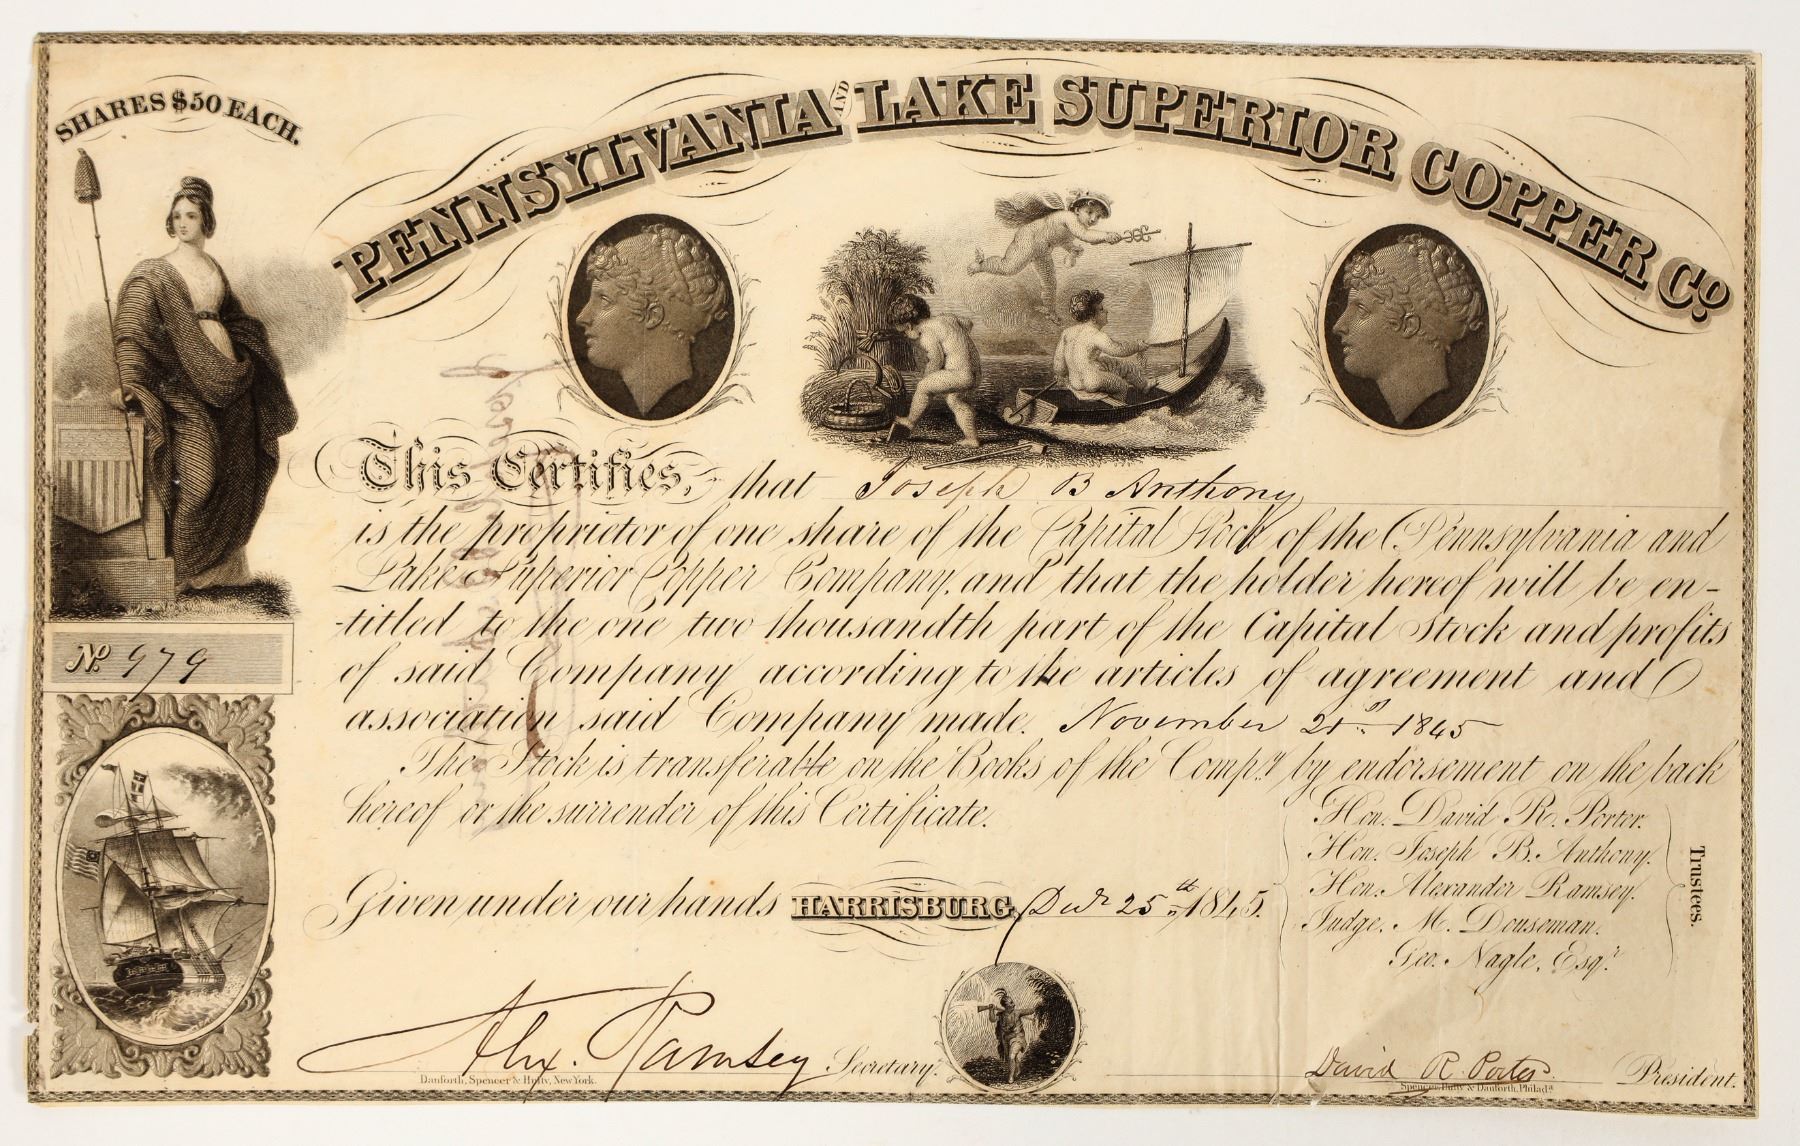 SHARES $50 EACH.
PENNSYLVANIA AND LAKE SUPERIOR COPPER Co.
This Certifies, that Joseph B Anthony
is the proprietor of one share of the Capital Stock of the Pennsylvania and
Lake Superior Copper Company, and that the holder hereof will be en-
-titled to the one two thousandth part of the Capital Stock and profits
of said Company according to the articles of agreement and
association said Company made. November 21st 1845
The Stock is transferable on the Books of the Compy. by endorsement on the back
hereof or the surrender of this Certificate.
No. 979
Given under our hands HARRISBURG, Decr 25th 1845.
Hon. David R. Porter.
Hon. Joseph B. Anthony.
Hon. Alexander Ramsey.
Judge. M. Douseman.
Geo. Nagle, Esqr.
Trustees.
Alex. Ramsey Secretary.
David R. Porter President.
Danforth, Spencer & Hufty, New York.
Spencer, Hufty & Danforth, Philada.